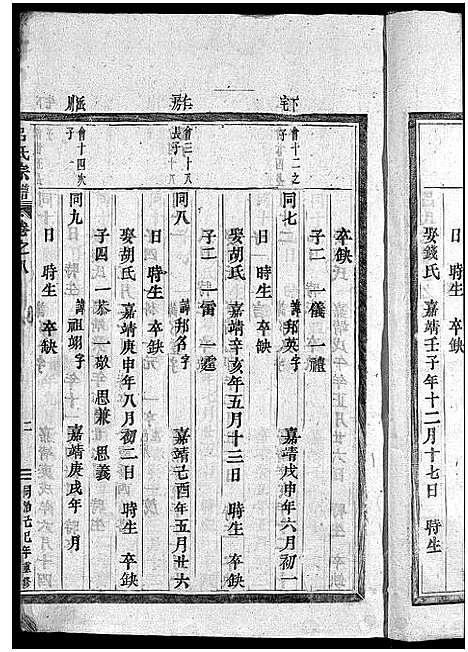 娶錢氏 嘉靖壬子年十二月十七日 時生
卒缺
下宅
會十二之子
子二 一儀 一禮
同七 諱邦英字 嘉靖戊申年六月初一
日 時生 卒缺
娶胡氏 嘉靖辛亥年五月十三日 時生 卒缺
子二 一雷 一霆
會三十八長子
同八 諱邦名字 嘉靖己酉年五月廿六
日 時生 卒缺
娶胡氏 嘉靖庚申年八月初二日 時生 卒缺
子四 一恭 一敬 思兼 思義
會十四次子
同九 諱祖翊字 嘉靖庚戌年 月
日 時生 卒缺
呂氏宗譜 卷之八 二